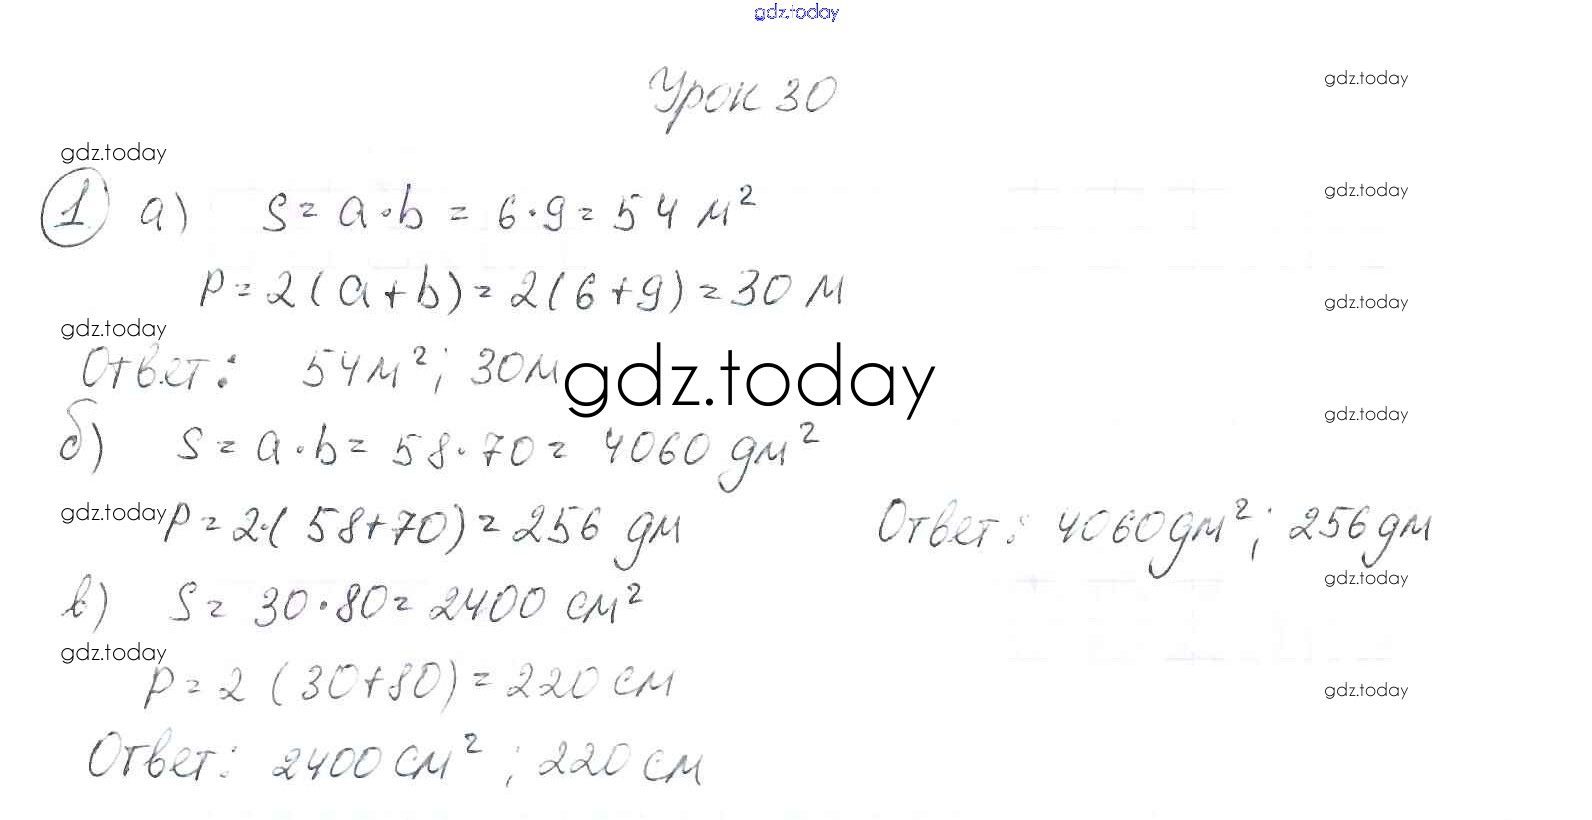 gdz.today
Урок 30
gdz.today
gdz.today
1 а) S = a · b = 6 · 9 = 54 м²
gdz.today
P = 2 (a + b) = 2 (6 + 9) = 30 м
gdz.today
gdz.today
Ответ: 54 м²; 30 м
gdz.today
gdz.today
б) S = a · b = 58 · 70 = 4060 дм²
gdz.today
P = 2 · (58 + 70) = 256 дм Ответ: 4060 дм²; 256 дм
gdz.today
в) S = 30 · 80 = 2400 см²
gdz.today
P = 2 (30 + 80) = 220 см
gdz.today
Ответ: 2400 см²; 220 см